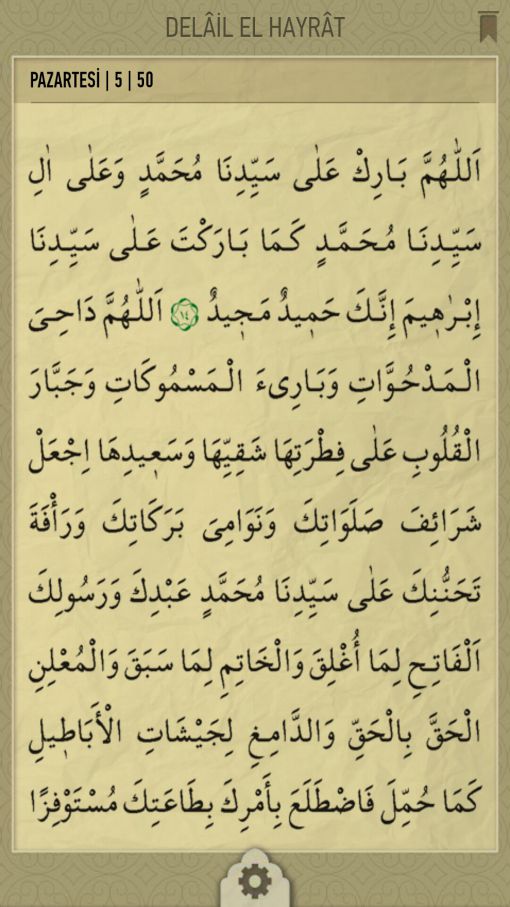 DELÂİL EL HAYRÂT
PAZARTESİ | 5 | 50
اَللّٰهُمَّ بَارِكْ عَلٰى سَيِّدِنَا مُحَمَّدٍ وَعَلٰى اٰلِ
سَيِّدِنَا مُحَمَّدٍ كَمَا بَارَكْتَ عَلٰى سَيِّدِنَا
إِبْرٰهِيمَ إِنَّكَ حَمِيدٌ مَجِيدٌ ١٤ اَللّٰهُمَّ دَاحِىَ
الْمَدْحُوَّاتِ وَبَارِىءَ الْمَسْمُوكَاتِ وَجَبَّارَ
الْقُلُوبِ عَلٰى فِطْرَتِهَا شَقِيِّهَا وَسَعِيدِهَا اِجْعَلْ
شَرَائِفَ صَلَوَاتِكَ وَنَوَامِىَ بَرَكَاتِكَ وَرَأْفَةَ
تَحَنُّنِكَ عَلٰى سَيِّدِنَا مُحَمَّدٍ عَبْدِكَ وَرَسُولِكَ
اَلْفَاتِحِ لِمَا أُغْلِقَ وَالْخَاتِمِ لِمَا سَبَقَ وَالْمُعْلِنِ
الْحَقَّ بِالْحَقِّ وَالدَّامِغِ لِجَيْشَاتِ الْأَبَاطِيلِ
كَمَا حُمِّلَ فَاضْطَلَعَ بِأَمْرِكَ بِطَاعَتِكَ مُسْتَوْفِزًا